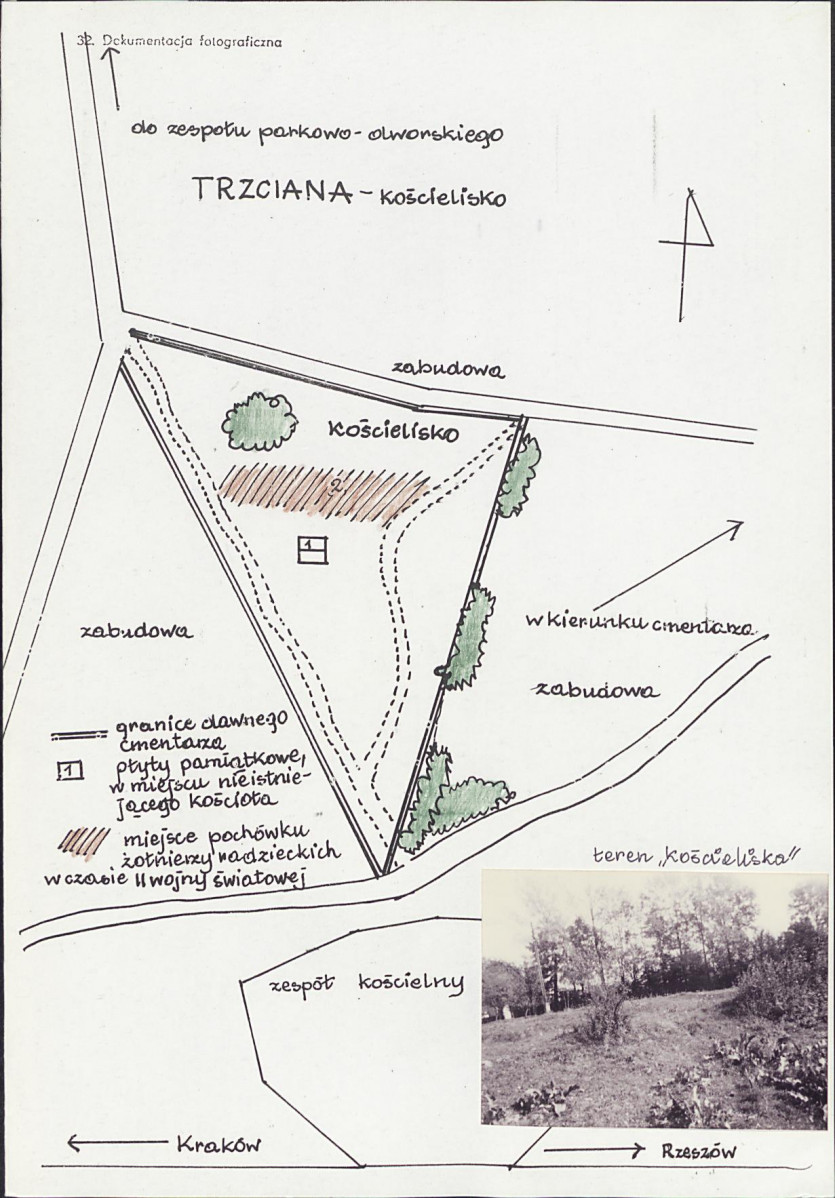 32. Dokumentacja fotograficzna
do zespołu parkowo-dworskiego
TRZCIANA - Kościelisko
zabudowa
Kościelisko
2
1
w kierunku cmentarza
zabudowa
zabudowa
granice dawnego
cmentarza
1
płyty pamiątkowe,
w miejscu nieistnie-
jącego kościoła
miejsce pochówku
żołnierzy radzieckich
w czasie II wojny światowej
teren „Kościeliska"
zespół kościelny
Kraków
Rzeszów